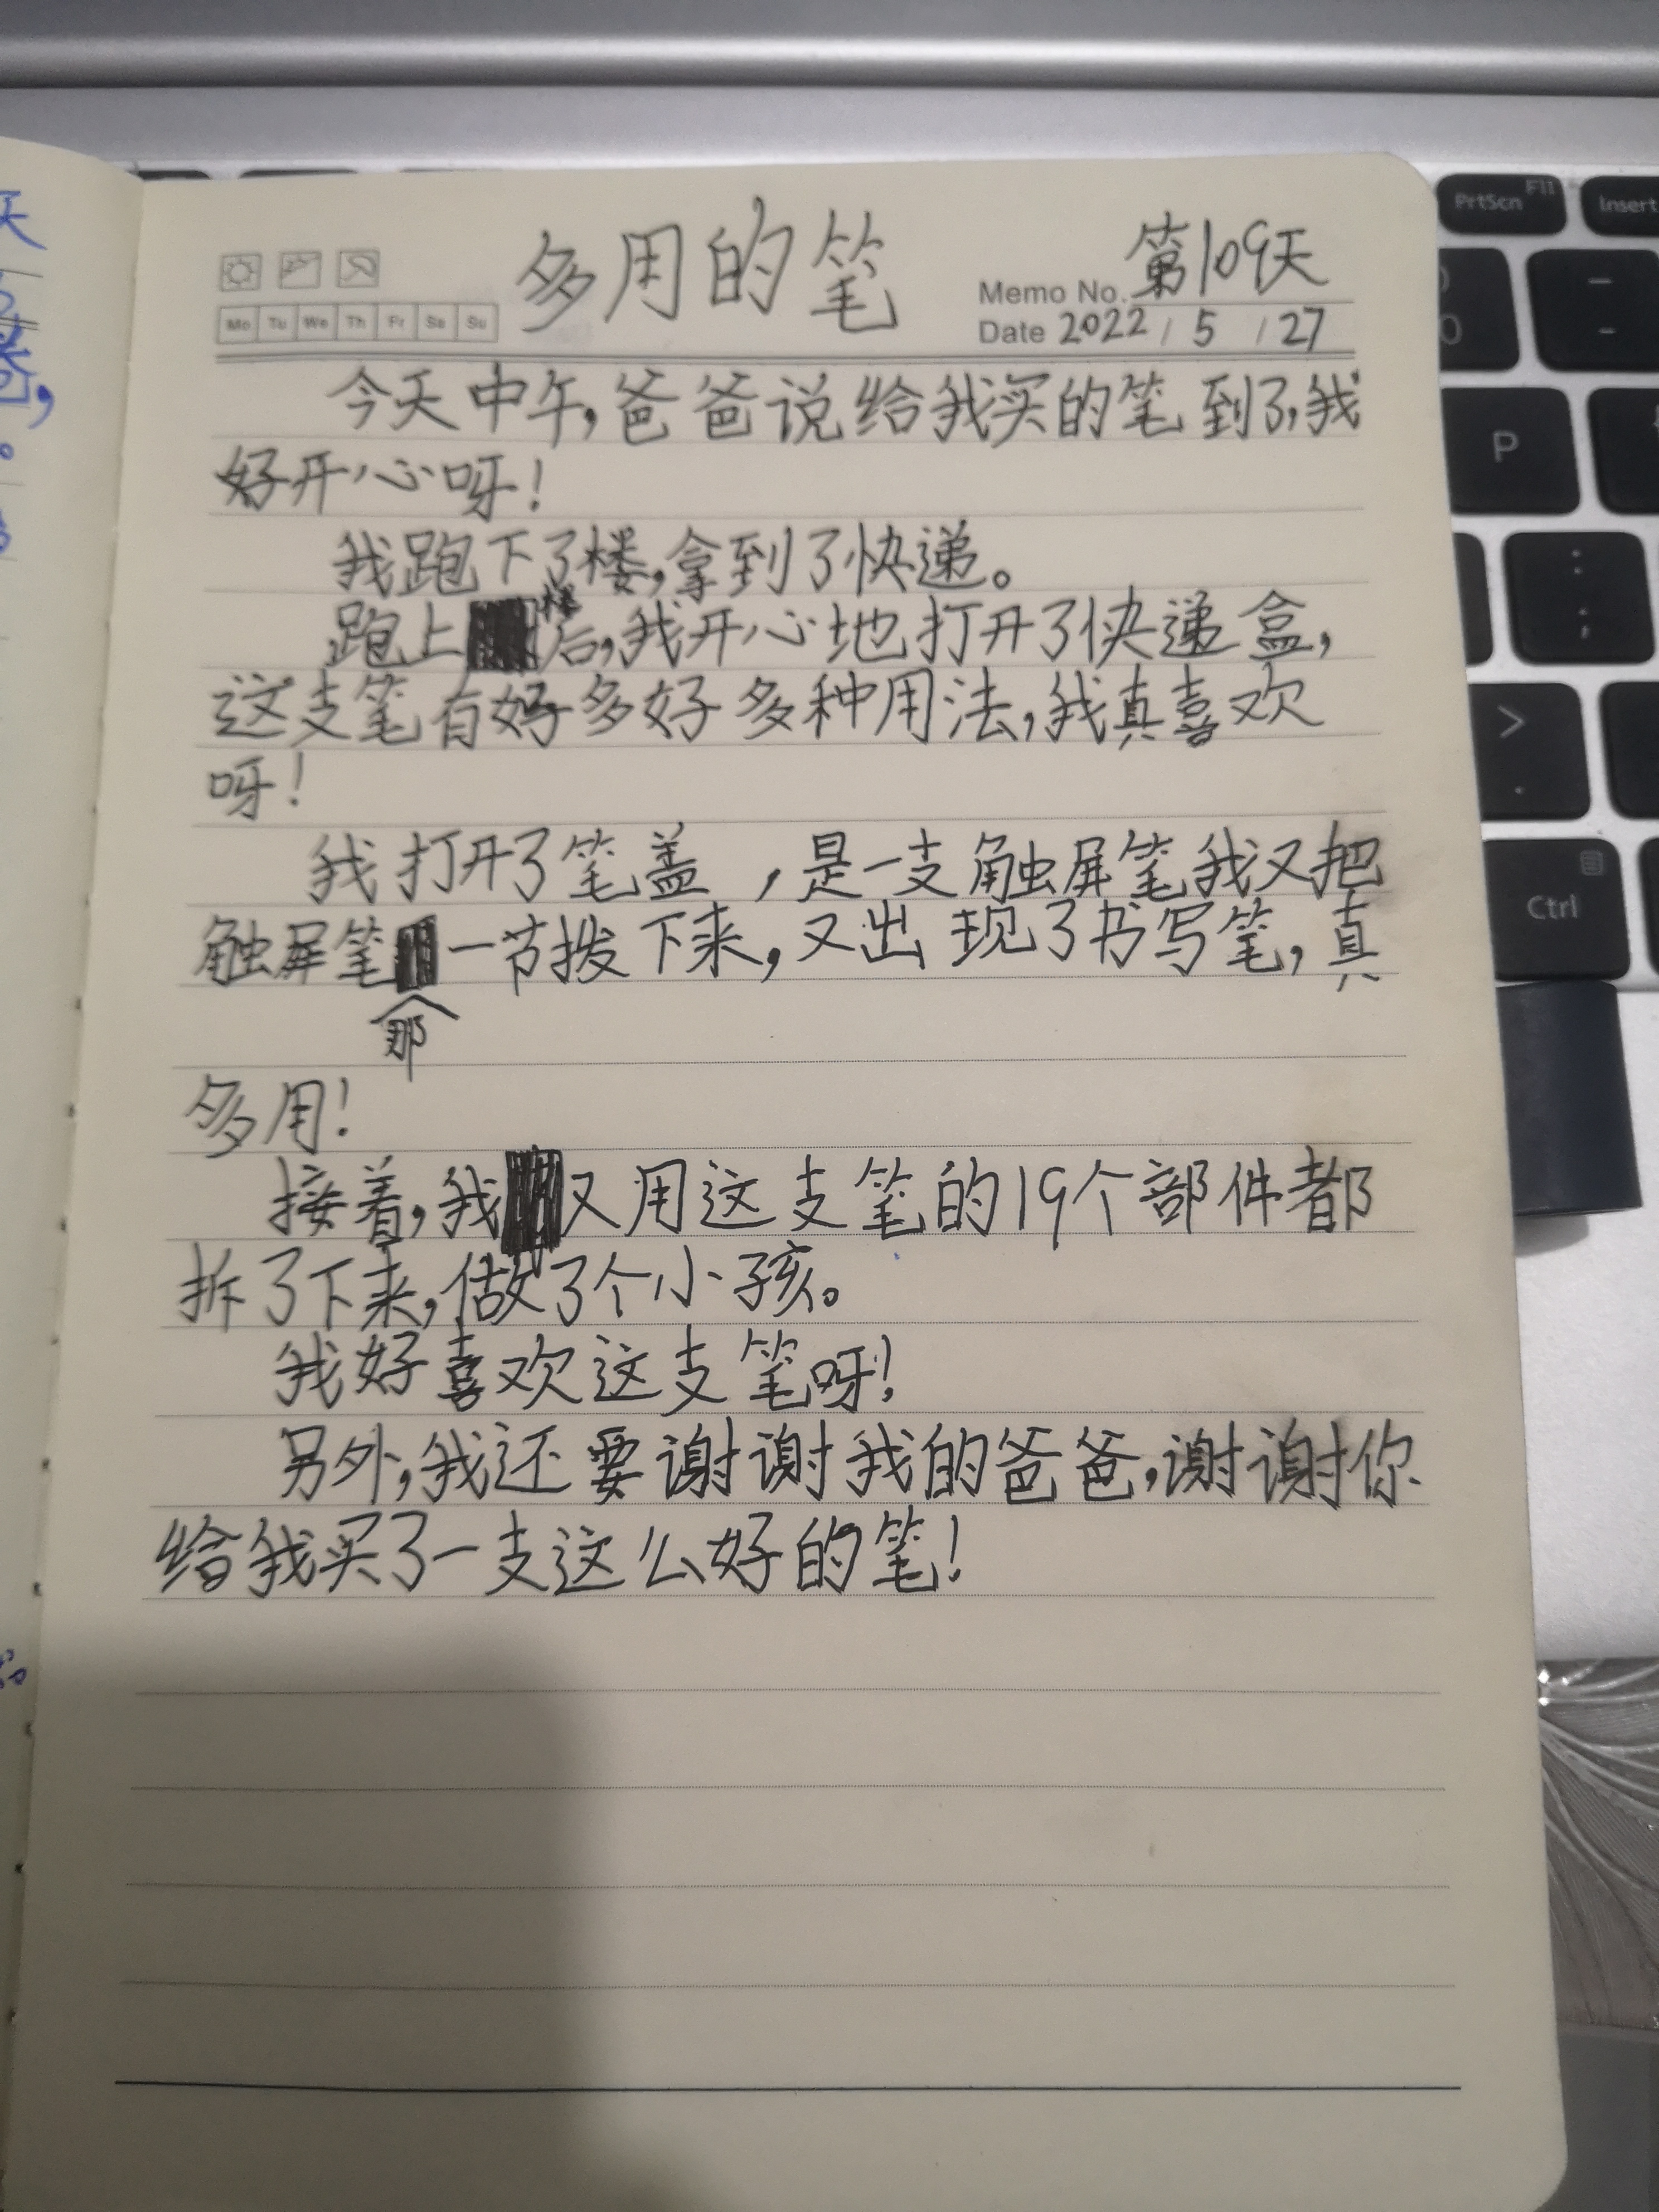 多用的笔
第109天
Memo No.
Date 2022 / 5 / 27
Mo Tu We Th Fr Sa Su
今天中午,爸爸说给我买的笔到了,我
好开心呀!
我跑下了楼,拿到了快递。
跑上楼后,我开心地打开了快递盒,
这支笔有好多好多种用法,我真喜欢
呀!
我打开了笔盖,是一支触屏笔我又把
触屏笔那一节拨下来,又出现了书写笔,真
多用!
接着,我又用这支笔的19个部件都
拆了下来,做了个小孩。
我好喜欢这支笔呀!
另外,我还要谢谢我的爸爸,谢谢你
给我买了一支这么好的笔!
PrtScn F11
Insert
P
Ctrl
天